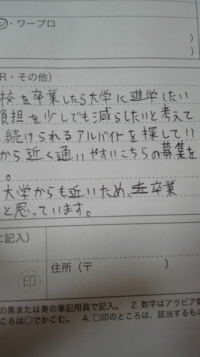 ・ワープロ
)
)
R・その他)
校を卒業したら大学に進学したい
負担を少しでも減らしたいと考えて
続けられるアルバイトを探してい
から近く通いやすいこちらの募集を
。
大学からも近いため、卒業
と思っています。
に記入)
印
住所(〒 )
の黒または青の筆記用具で記入。 2. 数字はアラビア数
ころは○でかこむ。 4. □印のところは、該当するもの